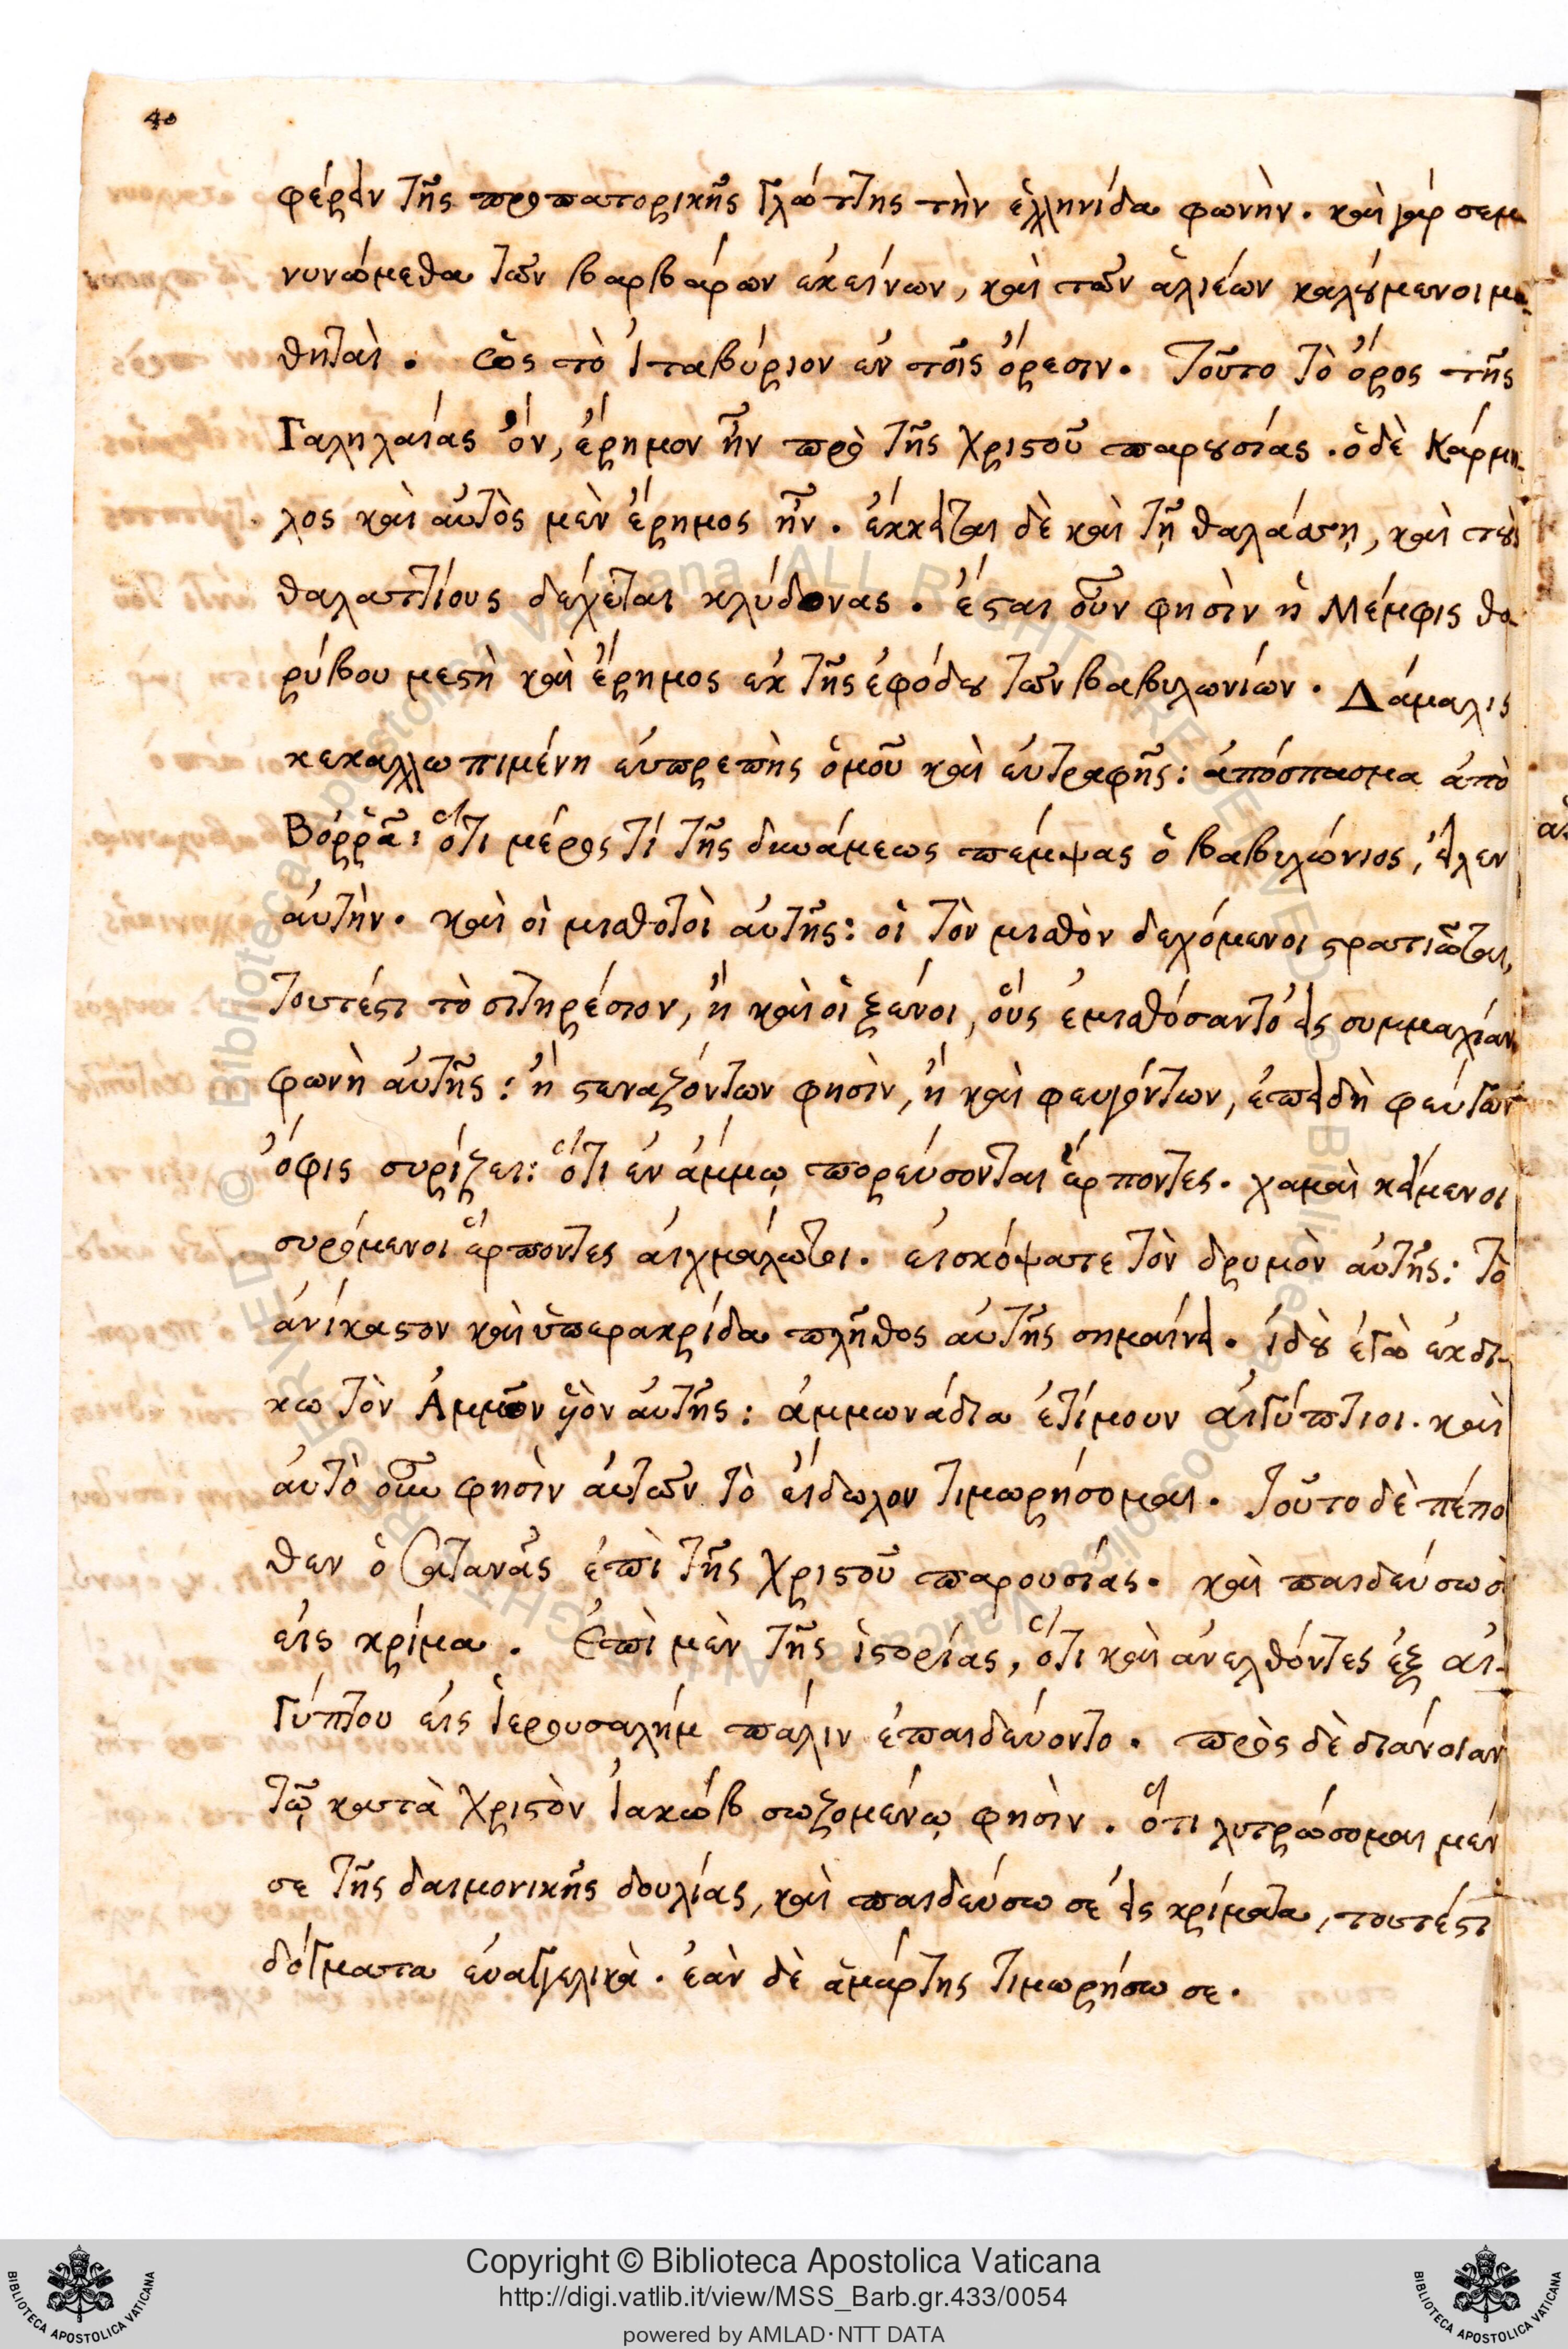 40
φέρειν τῆς προπατορικῆς γλώττης τὴν ἑλληνίδα φωνὴν. καὶ γὰρ σεμ
νυνώμεθα τῶν βαρβάρων ἐκείνων, καὶ τῶν ἁλιέων καλούμενοι μα
θηταὶ. ὡς τὸ Ἰταβύριον ἐν τοῖς ὄρεσιν. τοῦτο τὸ ὄρος τῆς
Γαλιλαίας ὂν, ἔρημον ἦν πρὸ τῆς χριστοῦ παρουσίας. ὁ δὲ Κάρμη
λος καὶ αὐτὸς μὲν ἔρημος ἦν. ἔκκειται δὲ καὶ τῇ θαλάσσῃ, καὶ τοὺς
θαλαττίους δέχεται κλύδονας. ἔσται οὖν φησὶν ἡ Μέμφις θο
ρύβου μεστὴ καὶ ἔρημος ἐκ τῆς ἐφόδου τῶν βαβυλωνίων. Δάμαλις
κεκαλλωπιμένη εὐπρεπὴς ὁμοῦ καὶ εὐτραφῆς: ἀπόσπασμα ἀπὸ
Βορρᾶ: ὅτι μέρος τί τῆς δυνάμεως πέμψας ὁ βαβυλώνιος, εἷλεν
αὐτὴν. καὶ οἱ μισθοτοὶ αὐτῆς: οἱ τὸν μισθὸν δεχόμενοι στρατιῶται,
τουτέστι τὸ σιτηρέσιον, ἢ καὶ οἱ ξένοι, οὓς ἐμισθόσαντο εἰς συμμαχίαν
φωνὴ αὐτῆς: ἢ στεναζόντων φησὶν, ἢ καὶ φευγόντων, ἐπειδὴ φεύγων
ὄφις συρίζει: ὅτι ἐν ἄμμῳ πορεύσονται ἕρποντες. χαμαὶ κείμενοι
συρόμενοι ἕρποντες αἰχμάλωτοι. εἰσκόψατε τὸν δρυμὸν αὐτῆς: τὸ
ἀνίκαστον καὶ ὑπερακρίδα πλῆθος αὐτῆς σημαίνει. ἰδοὺ ἐγὼ ἐκδι-
κω τὸν Ἀμμῶν υἱὸν αὐτῆς: ἀμμωνάδια ἐτίμουν αἰγύπτιοι. καὶ
αὐτὸ οὖν φησὶν αὐτῶν τὸ εἴδωλον τιμωρήσομαι. τοῦτο δὲ πέπο
θεν ὁ Σατανᾶς ἐπὶ τῆς χριστοῦ παρουσίας. καὶ παιδεύσω σὲ
εἰς κρίμα. Ἐπὶ μὲν τῆς ἱστορίας, ὅτι καὶ ἀνελθόντες ἐξ αἰ-
γύπτου εἰς Ἱερουσαλήμ πάλιν ἐπαιδεύοντο. πρὸς δὲ διάνοιαν
τῷ κατὰ χριστὸν Ἰακώβ σωζομένῳ φησὶν. ὅτι λυτρώσομαι μέν
σε τῆς δαιμονικῆς δουλίας, καὶ παιδεύσω σὲ εἰς κρίματα, τουτέστι
δόγματα εὐαγγελικὰ. ἐὰν δὲ ἁμάρτης τιμωρήσω σε.
Copyright © Biblioteca Apostolica Vaticana
http://digi.vatlib.it/view/MSS_Barb.gr.433/0054
powered by AMLAD·NTT DATA